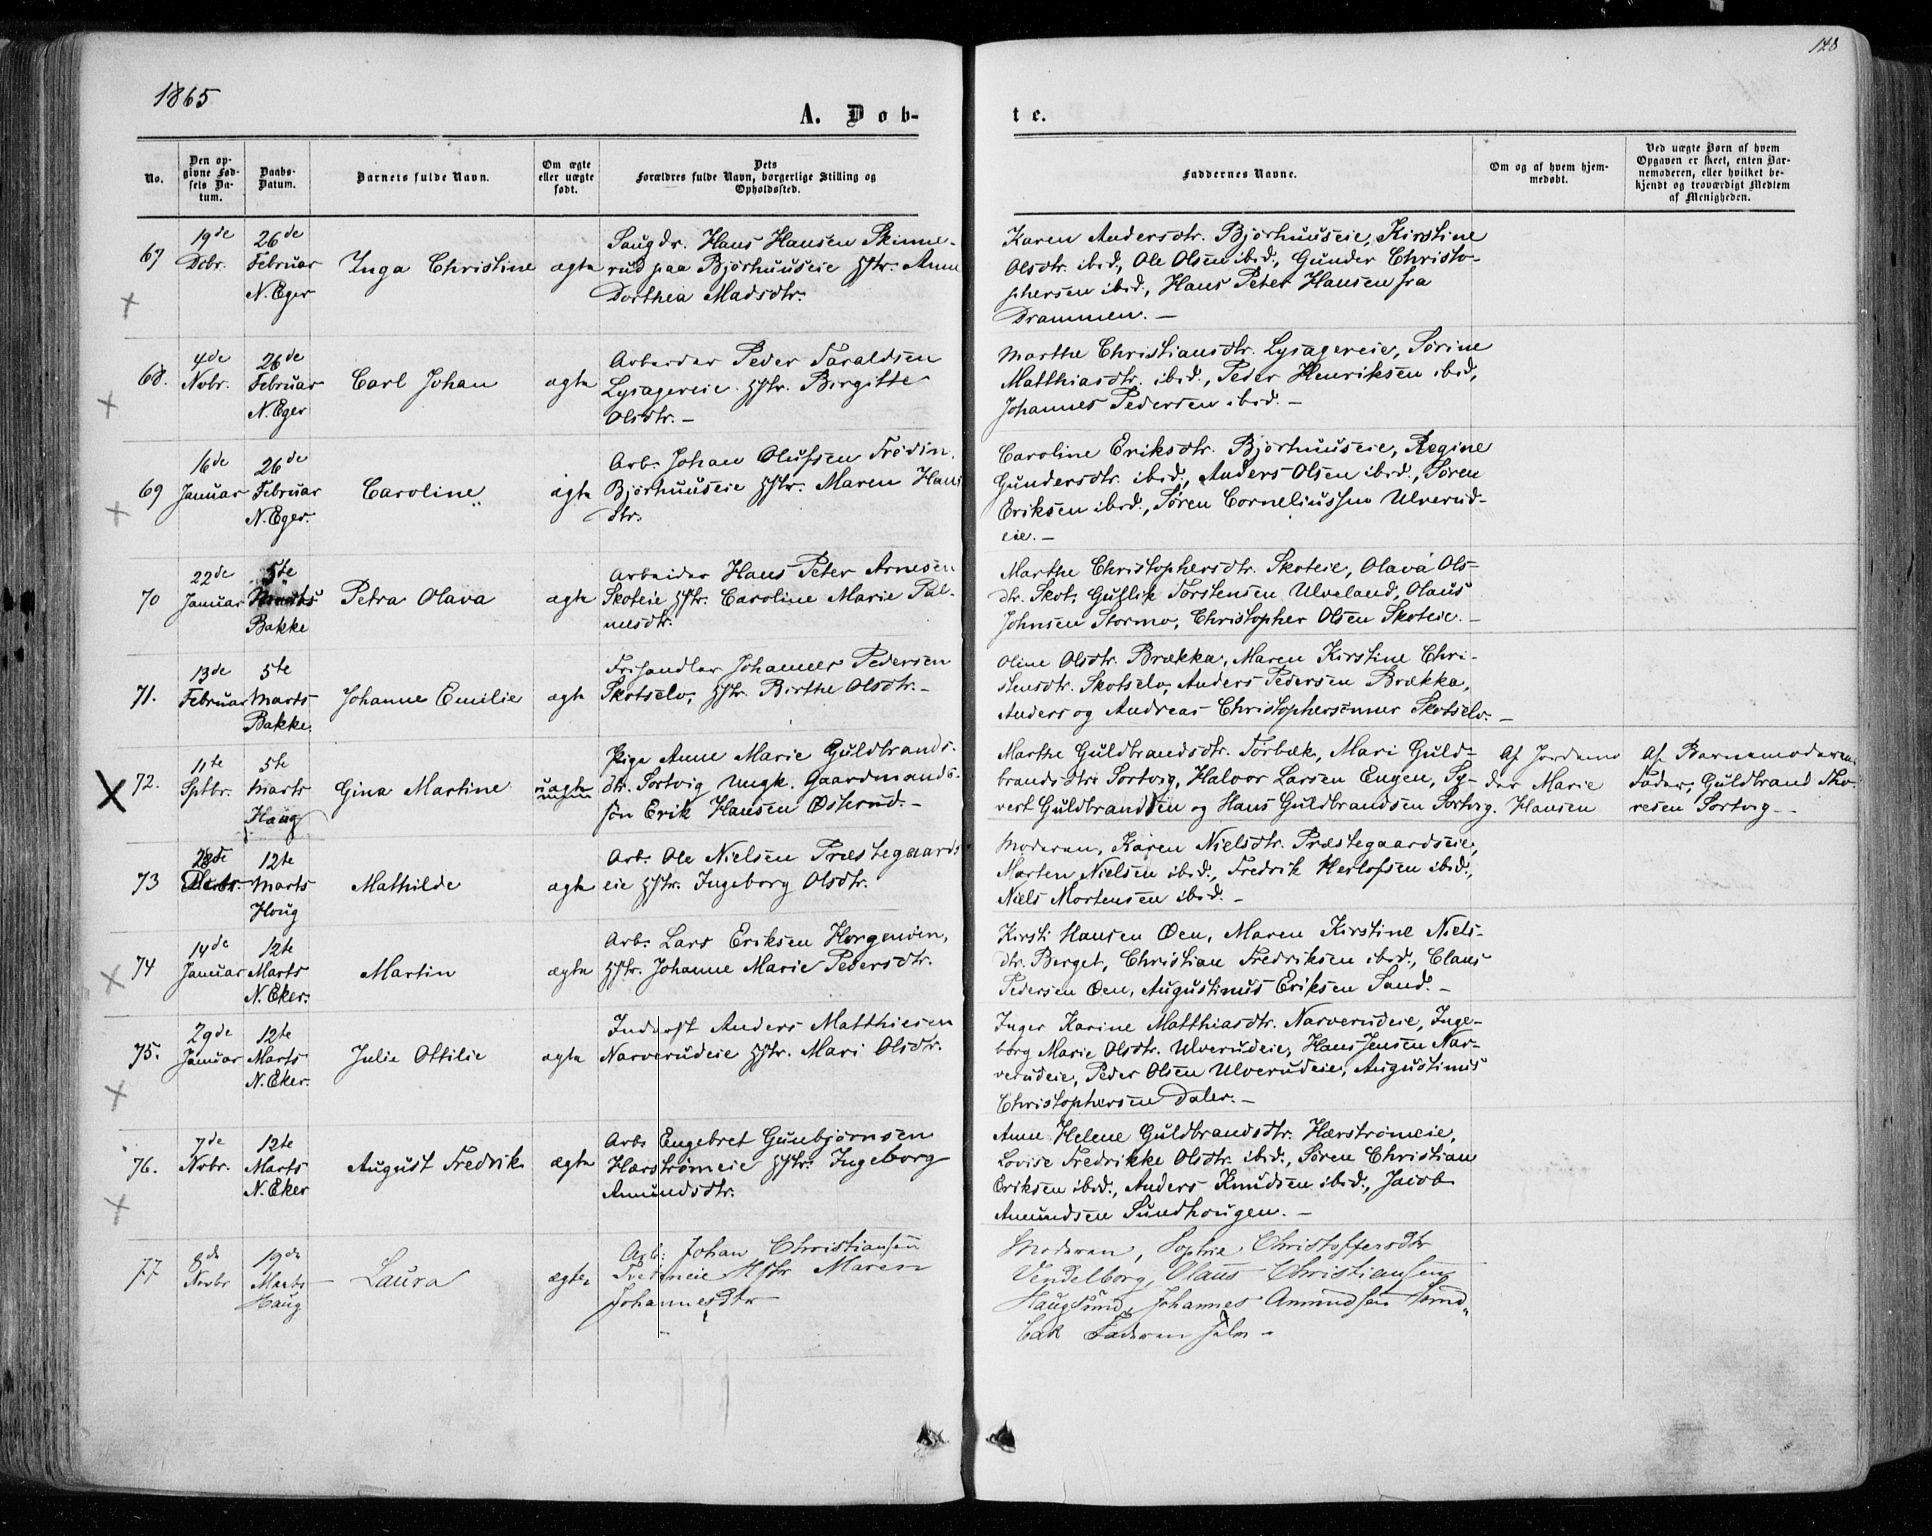 1865
148
A. Døb-
te.
No.
Den op-
givne Fød-
sels Da-
tum.
Daabs-
Datum.
Barnets fulde Navn.
Om ægte
eller uægte
født.
Dets
Forældres fulde Navn, borgerlige Stilling og
Opholdssted.
Faddernes Navne.
Om og af hvem hjem-
medøbt.
Ved uægte Børn af hvem
Opgaven er skeet, enten Bar-
nemoderen, eller hvilket be-
kjendt og troværdigt Medlem
af Menigheden.
67
19de
Dcbr.
26de
Februar
N. Eger
Inga Christine
ægte
Saugdr. Hans Hansen Skinne-
rud paa Bjørhuuseie Hstr. Anne
Dorthea Madsdtr.
Karen Andersdtr. Bjørhuuseie, Kirstine
Olsdtr. ibid., Ole Olsen ibid., Gunder Christo-
phersen ibid., Hans Peter Hansen fra
Drammen. –
68.
4de
Novbr.
26de
Februar
N. Eger
Carl Johan
ægte
Arbeider Peder Taraldsen
Lysagereie Hstr. Birgitte
Olsdtr. –
Marthe Christiansdtr. Lysagereie, Sørine
Matthiasdtr. ibid., Peder Henriksen ibid,
Johannes Pedersen ibid. –
69
16de
Januar
26de
Februar
N. Eger.
Caroline
ægte
Arb. Johan Olufsen Frødin,
Bjørhuuseie Hstr. Maren Hans
dtr.
Caroline Eriksdtr. Bjørhuuseie, Regine
Gundersdtr. ibid., Anders Olsen ibid., Søren
Eriksen ibid., Søren Corneliussen Ulverud-
eie. –
70
22de
Januar
5te
Marts
Bakke
Petra Olava
ægte
Arbeider Hans Peter Arnesen
Skoteie Hstr. Caroline Marie Pal-
mesdtr.
Marthe Christophersdtr. Skoteie, Olava Ols-
dtr. Skot, Gutzlik Torstensen Ulveland, Olaus
Johnsen Stormo, Christopher Olsen Skoteie. –
71.
13de
Februar
5te
Marts
Bakke
Johanne Emilie
ægte
Frihandler Johannes Pedersen
Skotselv, Hstr. Birthe Olsdtr. –
Oline Olsdtr. Brækka, Maren Kirstine Chri-
stensdtr. Skotselv, Anders Pedersen Brækka,
Anders og Andreas Christophersønner Skotselv. –
72.
11te
Sptbr.
5te
Marts
Haug
Gina Martine
uægte
Pige Anne Marie Guldbrands-
dtr. Sortvig Ungk. Gaardmands-
søn Erik Hansen Østerud. –
Marthe Guldbrandsdtr. Torbæk, Mari Guld-
brandsdtr. Sortvig, Halvor Larsen Engen, Sy-
vert Guldbrandsen og Hans Guldbrandsen Sortvig.
Af Jordemo
der Marie
Hansen
Af Barnemoderens
Fader, Guldbrand Tho-
resen Sortvig –
73
28de
12te
Marts
Houg
Mathilde
ægte
Arb. Ole Nielsen Præstegaards
eie Hstr. Ingeborg Olsdtr.
Moderen, Karen Nielsdtr. Præstegaardseie,
Morten Nielsen ibid., Fredrik Herlofsen ibid.,
Niels Mortensen ibid. –
74
14de
Januar
12te
Marts
N. Eker.
Martin
ægte
Arb. Lars Eriksen Horgenøen,
Hstr. Johanne Marie Pedersdtr.
Kirsti Hansen Øen, Maren Kirstine Niels-
dtr. Berget, Christian Fredriksen ibid., Claus
Pedersen Øen, Augustinus Eriksen Sand. –
75.
29de
Januar
12te
Marts
N. Eker.
Julie Ottilie
ægte
Inderst Anders Matthiesen
Narverudeie Hstr. Mari Olsdtr.
Inger Karine Matthiasdtr. Narverudeie, Inge-
borg Marie Olsdtr. Ulverudeie, Hans Jensen Nar-
verudeie, Peder Olsen Ulverudeie, Augustinus
Christophersen Daler. –
76.
7de
Nvbr.
12te
Marts
N. Eker
August Fredrik
ægte
Arb. Engebret Gunbjørnsen
Hærstrømeie Hstr. Ingeborg
Amundsdtr.
Anne Helene Guldbrandsdtr. Hærstrømeie,
Lovise Fredrikke Olsdtr. ibid., Søren Christian
Eriksen ibid., Anders Knudsen ibid., Jacob
Amundsen Sundhougen. –
77
8de
Novbr
19de
Marts
Haug
Laura
ægte
Arb: Johan Christiansen
Hstr Maren
Johannesdtr
Moderen, Sophie Christoffersdtr
Vendelborg, Olaus Christiansen
Haugsund, Johannes Amundsen Sund-
bak Faderen selv –